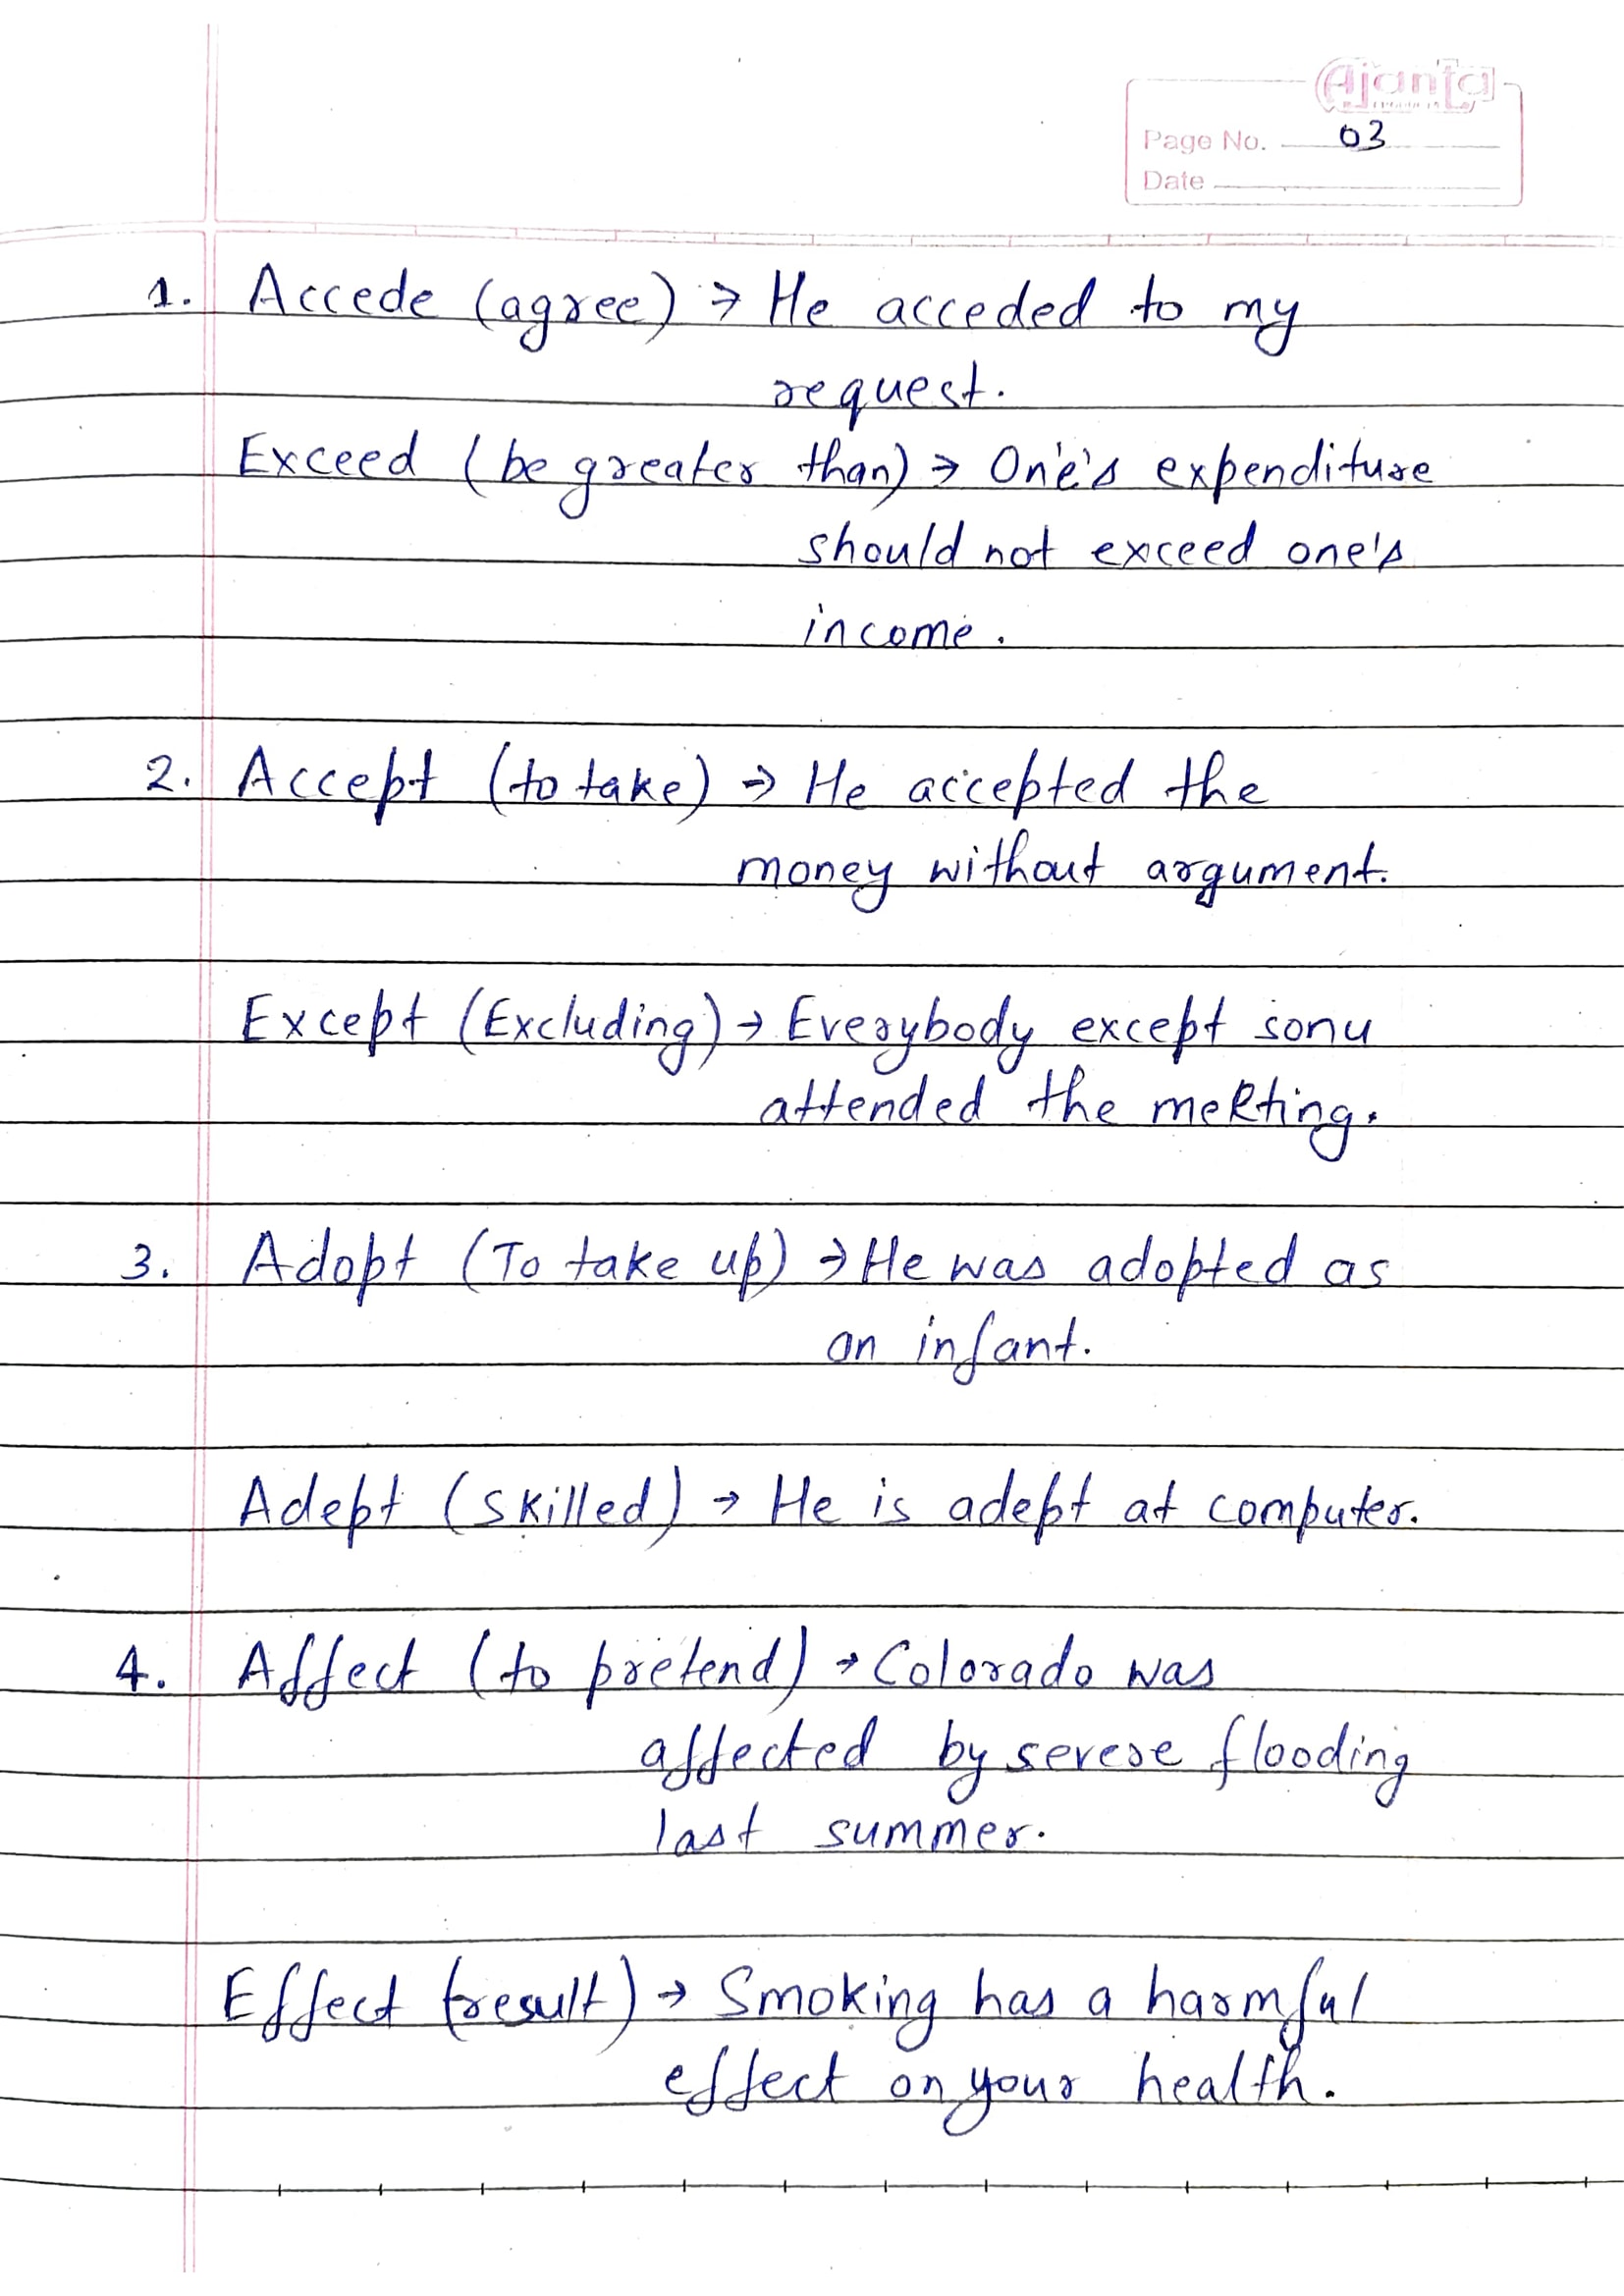 Ajanta
Page No. 03
Date
1. Accede (agree) → He acceded to my
request.
Exceed (be greater than) → One's expenditure
should not exceed one's
income.
2. Accept (to take) → He accepted the
money without argument.
Except (Excluding) → Everybody except sonu
attended the meeting.
3. Adopt (To take up) → He was adopted as
an infant.
Adept (skilled) → He is adept at computer.
4. Affect (to pretend) → Colorado was
affected by severe flooding
last summer.
Effect (result) → Smoking has a harmful
effect on your health.